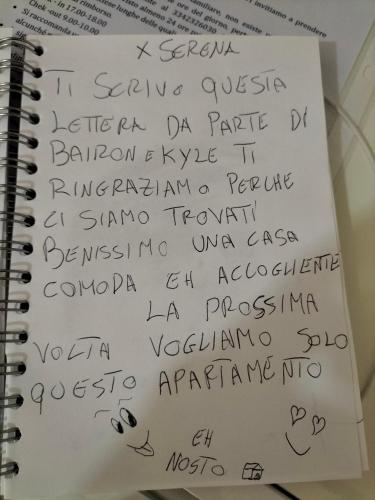 invitiamo a prendere
familiare, non esiste
ore del giorno
al 3342326030
almeno 24 ore
rimborso.
- in 17.00-18.00
Chek out 9.00-10.00
Si raccomanda
X SERENA
TI SCRIVO QUESTA
LETTERA DA PARTE DI
BAIRON E KYLE TI
RINGRAZIAMO PERCHE
CI SIAMO TROVATI
BENISSIMO UNA CASA
COMODA EH ACCOGLIENTE
LA PROSSIMA
VOLTA VOGLIAMO SOLO
QUESTO APARTAMENTO
EH
NOSTO